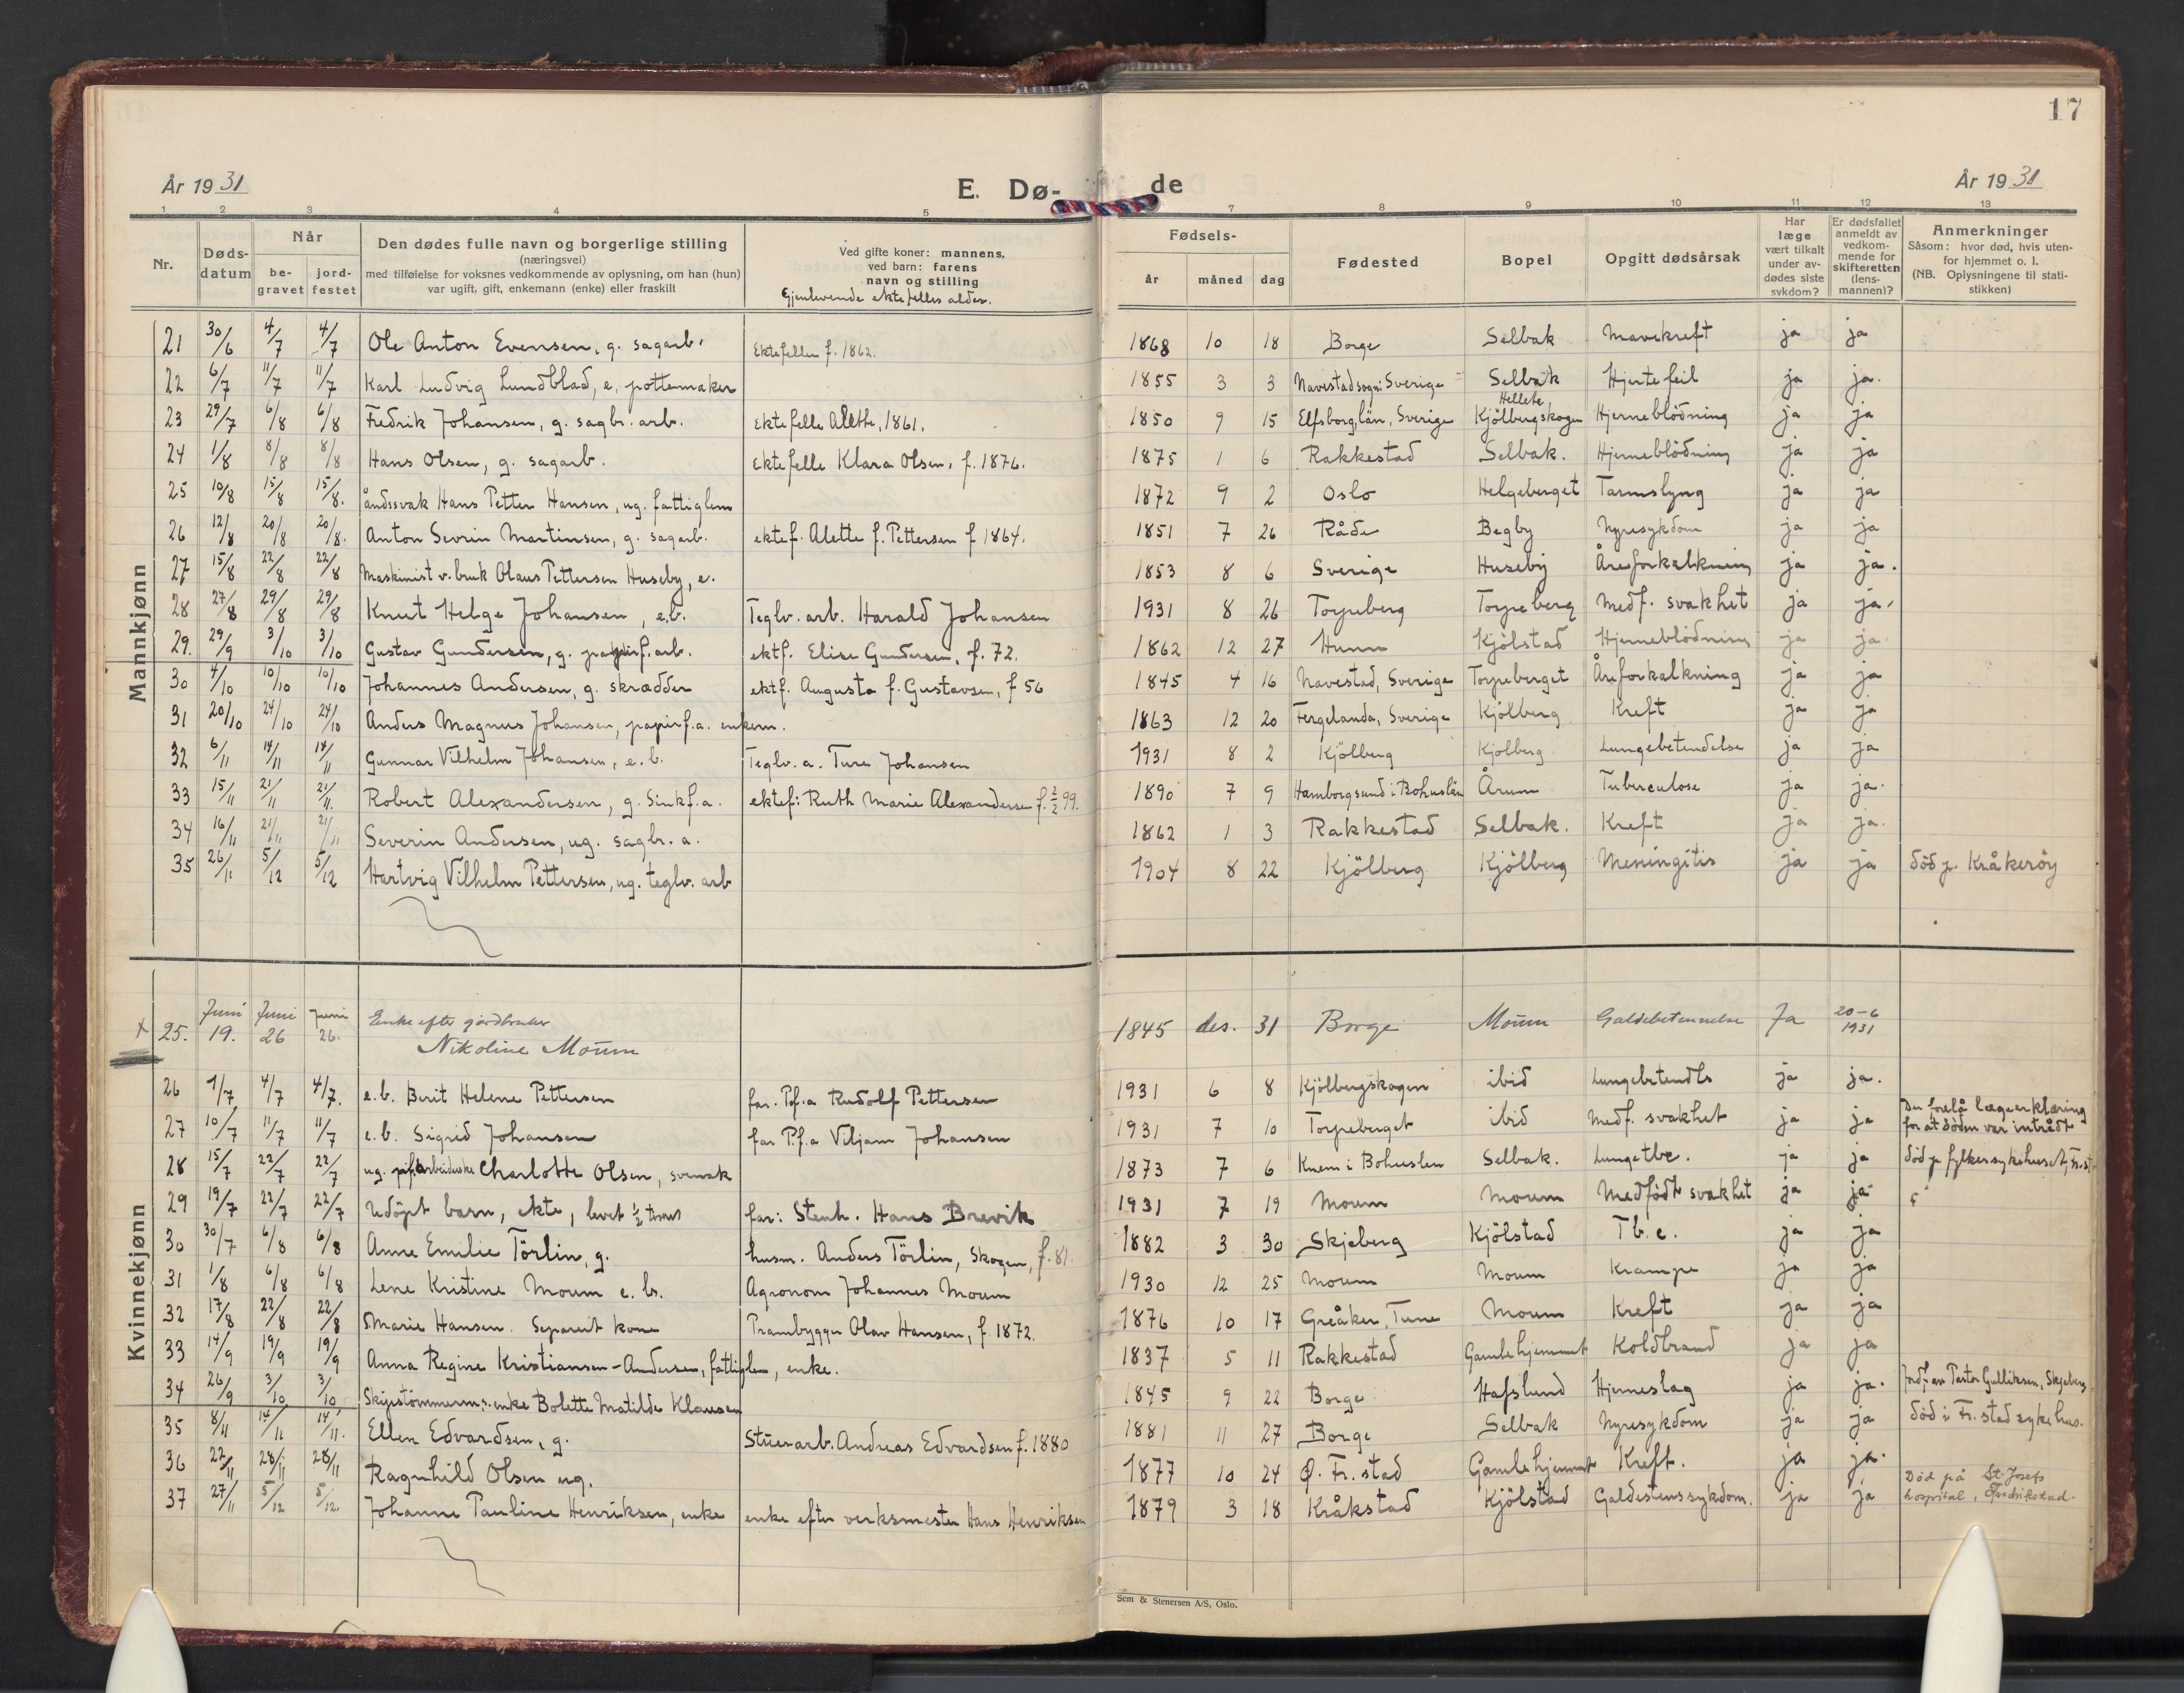 17
År 1931 E. Dø- de År 1931
1 2 3 4 5 7 8 9 10 11 12 13
Nr. Døds-datum Når be-gravet jord-festet Den dødes fulle navn og borgerlige stilling (næringsvei) med tilføielse for voksnes vedkommende av oplysning, om han (hun) var ugift, gift, enkemann (enke) eller fraskilt Ved gifte koner: mannens, ved barn: farens navn og stilling Gjenlevende ektefelles alder. Fødsels- år måned dag Fødested Bopel Opgitt dødsårsak Har læge vært tilkalt under av-dødes siste sykdom? Er dødsfallet anmeldt av vedkom-mende for skifteretten (lens-mannen)? Anmerkninger Såsom: hvor død, hvis uten-for hjemmet o. l. (NB. Oplysningene til stati-stikken)
Mannkjønn
21 30/6 4/7 4/7 Ole Anton Evensen, g. sagarb. Ektefellen f. 1862. 1868 10 18 Borge Selbak Mavekreft ja ja
22 6/7 11/7 11/7 Karl Ludvig Lundblad, e. pottemaker 1855 3 3 Navestad sogn: Sverige Selbak Hjertefeil ja ja.
23 29/7 6/8 6/8 Fredrik Johansen, g. sagbr. arb. Ektefelle Alethe, 1861. 1850 9 15 Elfsborg län, Sverige Hellebe Kjölbergskogen Hjerneblödning ja ja
24 1/8 8/8 8/8 Hans Olsen, g. sagarb. Ektefelle Klara Olsen, f. 1876. 1875 1 6 Rakkestad Selbak. Hjerneblödning ja ja
25 10/8 15/8 15/8. åndssvak Hans Petter Hansen, ug. fattiglem 1872 9 2 Oslo Helgeberget Tarmslyng ja ja
26 12/8 20/8 20/8. Anton Sevrin Martinsen, g. sagarb. ektef. Alette f. Pettersen f 1864. 1851 7 26 Råde Begby Nyresykdom ja ja
27 15/8 22/8 22/8 Maskinist v. bruk Olaus Pettersen Huseby, e. 1853 8 6 Sverige Huseby Åreforkalkning ja ja.
28 27/8 29/8 29/8 Knut Helge Johansen, e.b. Teglv. arb. Harald Johansen 1931 8 26 Torpeberg Torpeberg Medf. svakhet ja ja.
29. 29/9 3/10 3/10 Gustav Gundersen, g. papirf. arb. ektf. Elise Gundersen, f. 72. 1862 12 27 Hunn Kjölstad Hjerneblödning ja ja.
30 4/10 10/10 10/10 Johannes Andersen, g. skrædder ektf. Augusta f. Gustavsen, f 56 1845 4 16 Navestad, Sverige Torpeberget Åreforkalkning ja ja
31 20/10 24/10 24/10 Anders Magnus Johansen, papirf.a. enkem. 1863 12 20 Fergelanda, Sverige Kjölberg Kreft ja ja
32 6/11 14/11 14/11 Gunnar Vilhelm Johansen, e. b. Teglv. a. Ture Johansen 1931 8 2 Kjölberg Kjölberg Lungebetendelse ja ja
33 15/11 21/11 21/11. Robert Alexandersen, g. Sinkf.a. ektef: Ruth Marie Alexandersen f. 2/2 99. 1890 7 9 Hamborgsund i Bohuslän Årum Tuberculose ja ja.
34 16/11 21/11 21/11 Severin Andersen, ug. sagbr. a. 1862 1 3 Rakkestad Selbak. Kreft ja ja.
35 26/11 5/12 5/12 Hartvig Vilhelm Pettersen, ug. teglv. arb 1904 8 22 Kjölberg Kjölberg Meningitis ja ja död p. Kråkeröy
Kvinnekjønn
x 25. Juni 19. Juni 26 Juni 26. Enke efter gårdbruker Nikoline Moum 1845 des. 31 Borge Moum Galdebetennelse Ja 20-6 1931
26 1/7 4/7 4/7. e.b. Berit Helene Pettersen far. Pf.a Rudolf Pettersen 1931 6 8 Kjölbergskogen ibid Lungebetendls ja ja.
27 10/7 11/7 11/7 e.b. Sigrid Johansen far P.f.a Viljam Johansen 1931 7 10 Torpeberget ibid Medf. svakhet ja ja Der forelå lægeerklæring for at döden var intrådt
28 15/7 22/7 22/7 ug. pf.arbeiderske Charlotte Olsen, svensk 1873 7 6 Knem i Bohuslen Selbak. Lungetbc. ja ja död p. fylkessykehuset, Fr.st.
29 19/7 22/7 22/7 Udöpt barn, ekte, levet ½ time far: Stenh. Hans Brevik 1931 7 19 Moum Moum Medfödt svakhet ja ja
30 30/7 6/8 6/8 Anne Emilie Törlin, g. husm. Anders Törlin, Skogen, f. 81. 1882 3 30 Skjeberg Kjölstad Tb.c. ja ja
31 1/8 6/8 6/8 Lene Kristine Moum e. b. Agronom Johannes Moum 1930 12 25 Moum Moum Krampe ja ja
32 17/8 22/8 22/8 Marie Hansen. Separert kone Prambygger Olav Hansen, f. 1872. 1876 10 17 Greåker, Tune Moum Kreft ja ja
33 14/9 19/9 19/9 Anna Regine Kristiansen-Andersen, fattiglem, enke. 1837 5 11 Rakkestad Gamlehjemmet Koldbrand ja ja
34 26/9 3/10 3/10 Skipstömmerm:s enke Bolette Matilde Klausen 1845 9 22 Borge Hafslund Hjerneslag ja ja. Jordf. av Pastor Gulliksen, Skjeberg
35 8/11 14/11 14/11. Ellen Edvardsen, g. Stuerarb. Andreas Edvardsen f. 1880 1881 11 27 Borge Selbak Nyresykdom ja ja död i Fr. stad sykehus.
36 22/11 28/11 28/11 Ragnhild Olsen ug. 1877 10 24 Ø. Fr. stad Gamlehjemmet Kreft. ja ja.
37 27/11 5/12 5/12. Johanne Pauline Henriksen, enke enke efter verksmester Hans Henriksen 1879 3 18 Kråkstad Kjölstad Galdestenssykdom. ja ja Död på St. Josefs hospital, Fredrikstad
Sem & Stenersen A/S, Oslo.